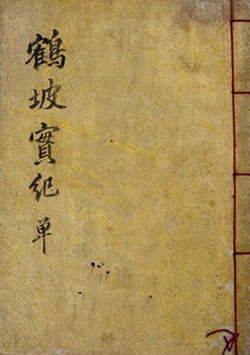 鶴坡實紀 單